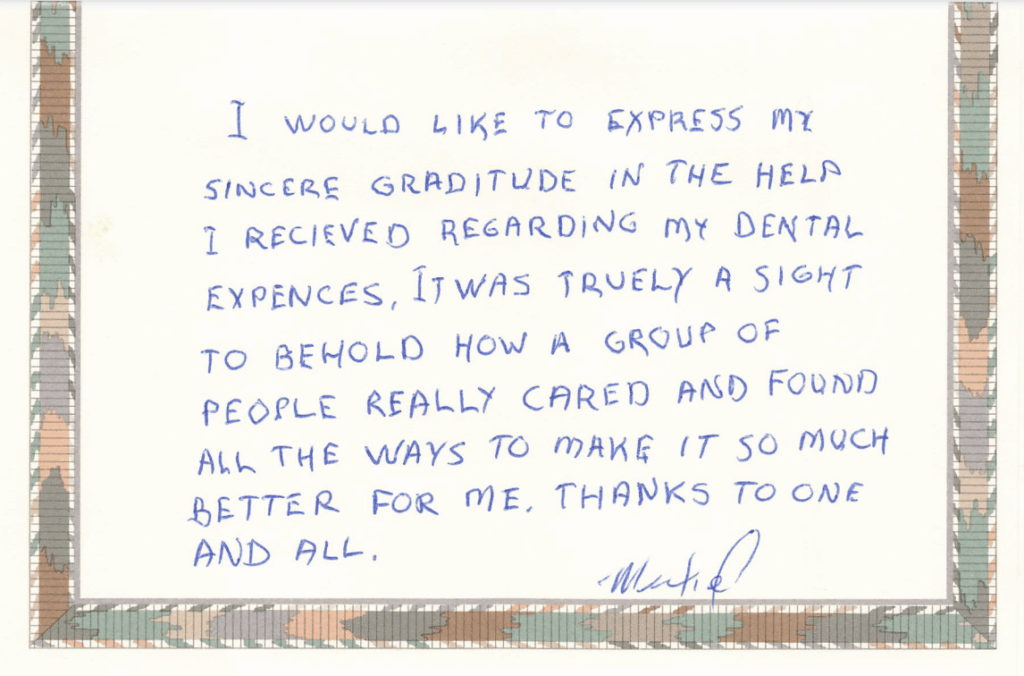 I WOULD LIKE TO EXPRESS MY
SINCERE GRADITUDE IN THE HELP
I RECIEVED REGARDING MY DENTAL
EXPENCES, IT WAS TRUELY A SIGHT
TO BEHOLD HOW A GROUP OF
PEOPLE REALLY CARED AND FOUND
ALL THE WAYS TO MAKE IT SO MUCH
BETTER FOR ME. THANKS TO ONE
AND ALL.